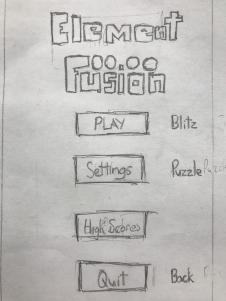 Element
Fusion
PLAY Blitz
Settings Puzzle
High Scores
Quit Back